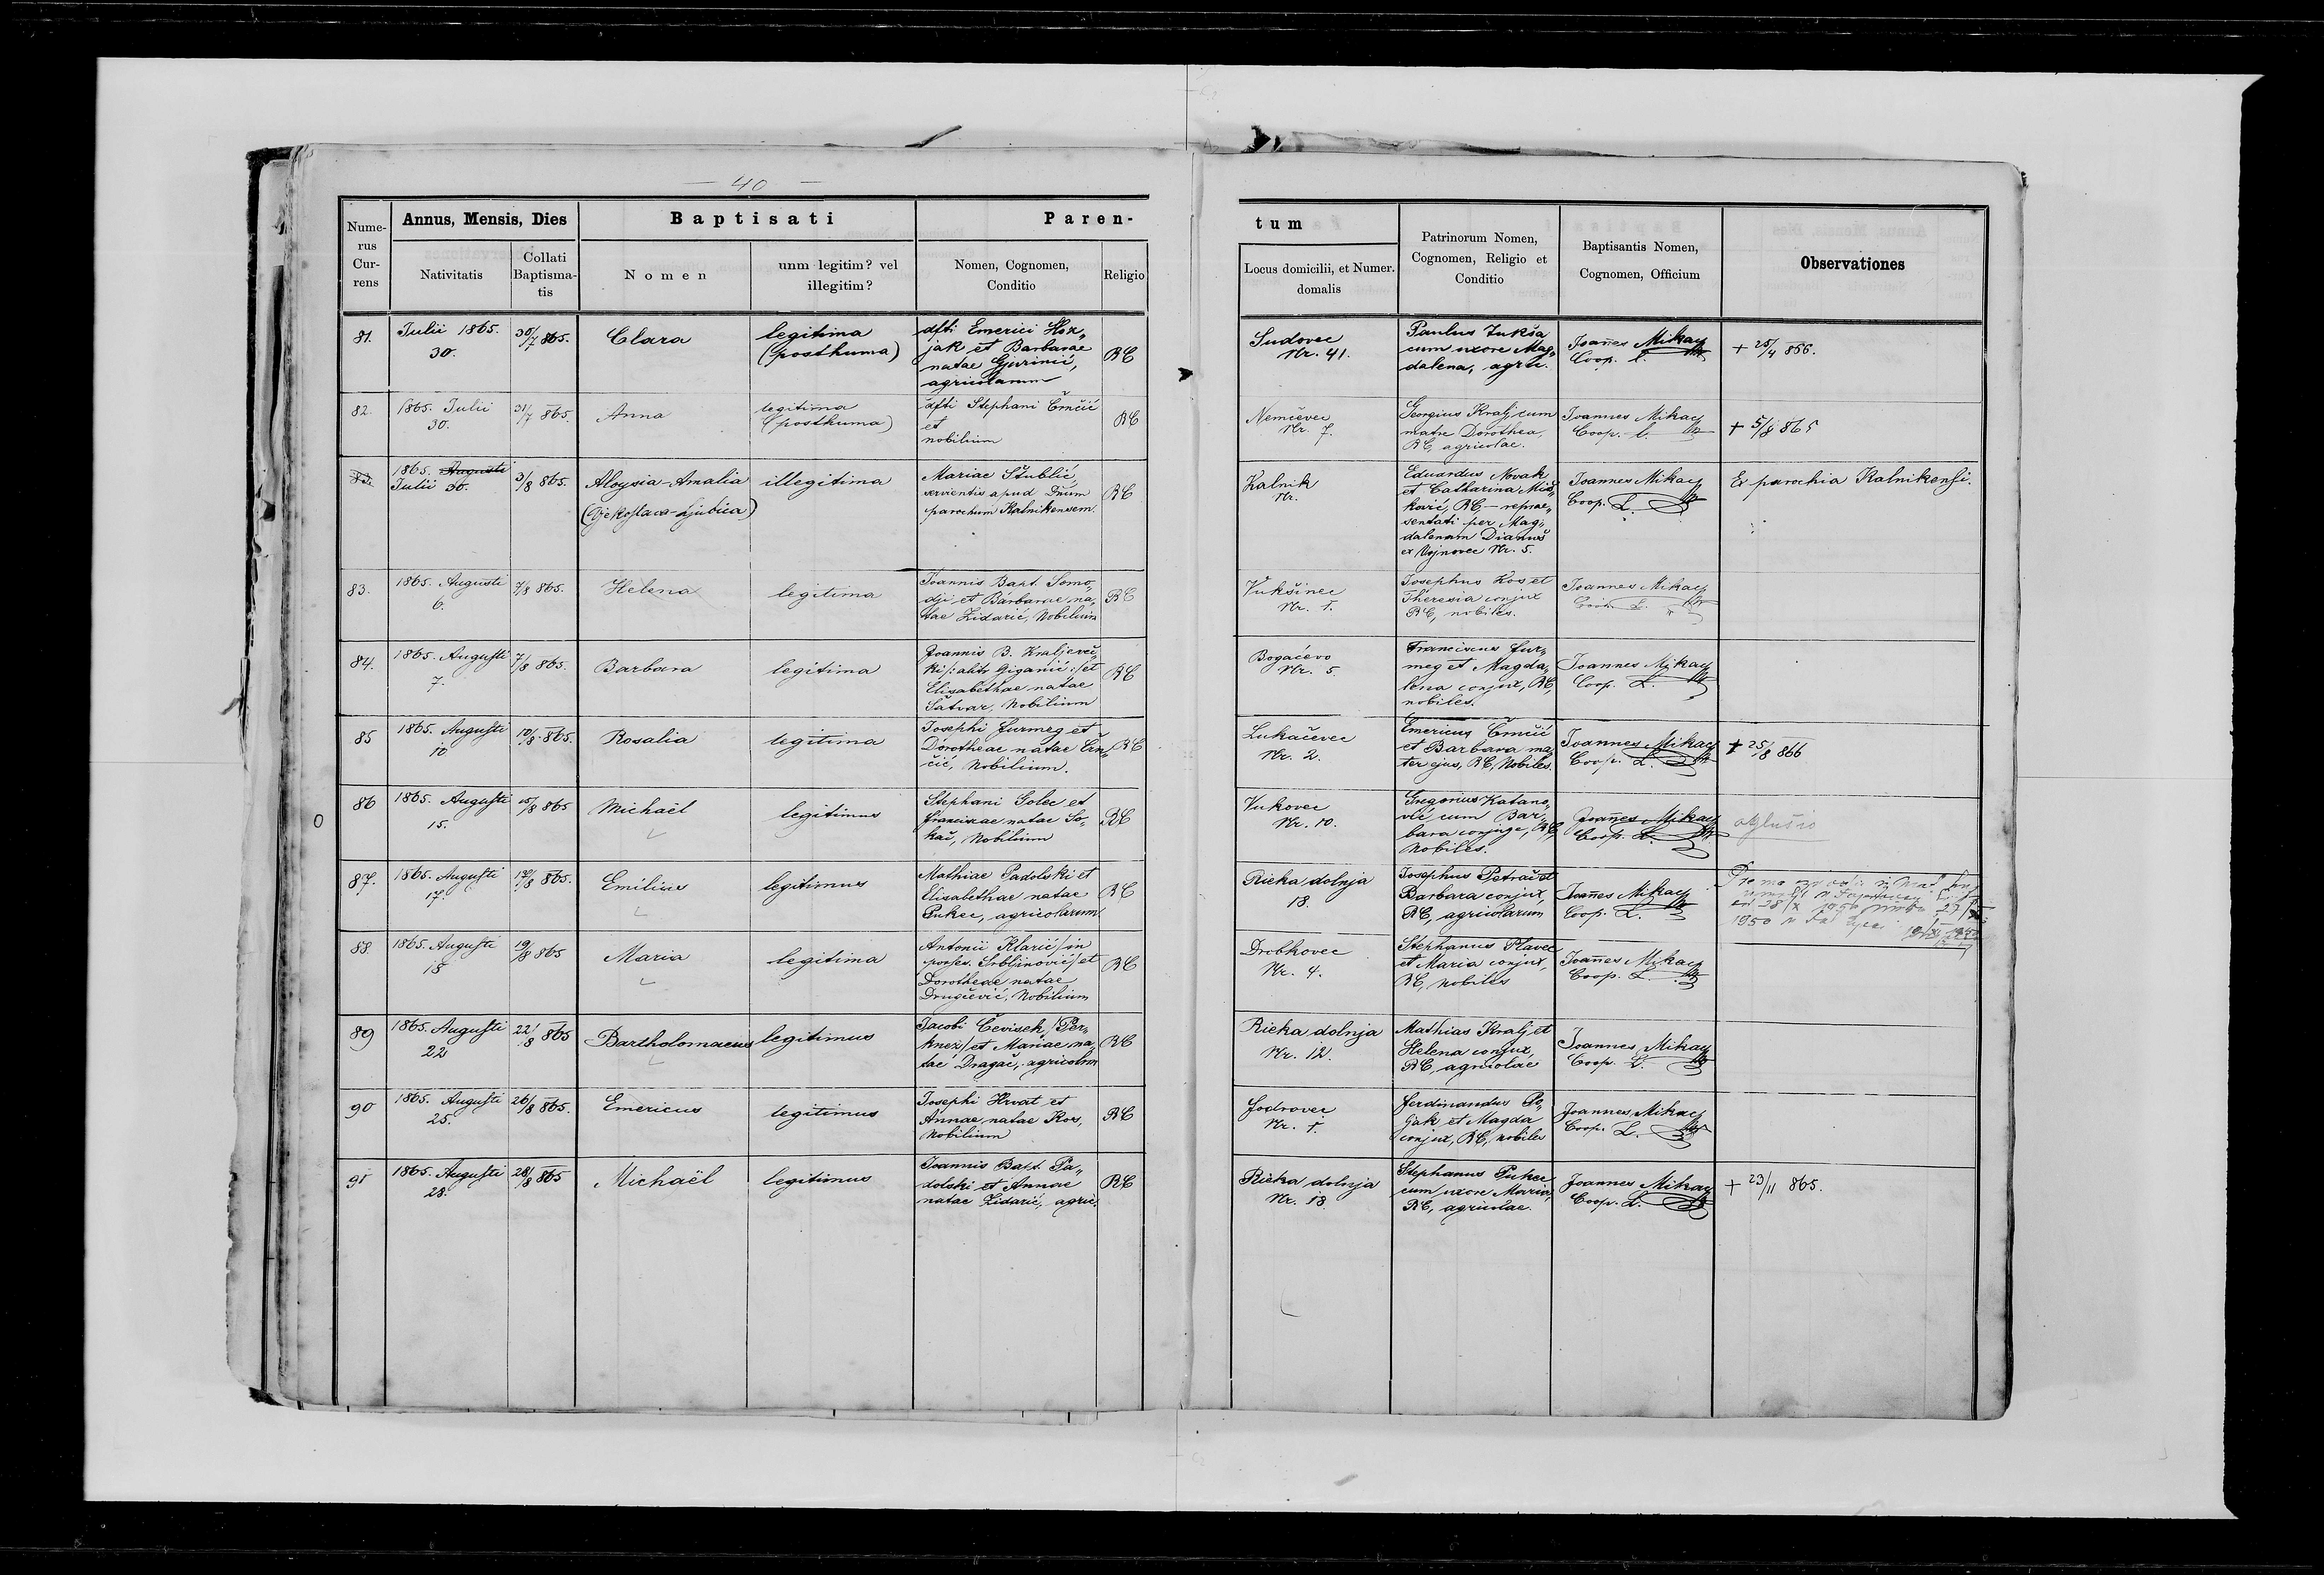 — 40 —
Nume-
rus
Cur-
rens
Annus, Mensis, Dies
Nativitatis
Collati
Baptisma-
tis
Baptisati
Nomen
unm legitim? vel
illegitim?
Paren-
Nomen, Cognomen,
Conditio
Religio
tum
Locus domicilii, et Numer.
domalis
Patrinorum Nomen,
Cognomen, Religio et
Conditio
Baptisantis Nomen,
Cognomen, Officium
Observationes
81.
Julii 1865.
30.
30/7 865.
Clara
legitima
(posthuma)
dfti Emerici Hor„
jak et Barbarae
natae Gjurinić,
agricolarum
RC
Sudovec
Nr. 41.
Paulus Jukša
cum uxore Mag„
dalena, agric.
Joannes Mikacy
Coop. l.
+ 25/4 866.
82.
1865. Julii
30.
31/7 865.
Anna
legitima
(posthuma)
dfti Stephani Črnčić
et
nobilium
RC
Nemčevec
Nr. 7.
Georgius Kralj cum
matre Dorothea,
RC, agricolae.
Joannes Mikacy
Coop. l.
+ 5/8 865
83.
1865. Augusti
Julii 30.
3/8 865.
Aloysia-Amalia
(Vjekoslava-Ljubica)
illegitima
Mariae Štublić,
servientis apud Dnum
parochum Kalnikensem.
RC
Kalnik
Nr.
Eduardus Novak
et Catharina Miš„
ković, RC, — reprae„
sentati per Mag„
dalenam Dianuš
ex Vojnovec Nr. 5.
Joannes Mikacy
Coop. L.
Ex parochia Kalnikensi.
83.
1865. Augusti
6.
7/8 865.
Helena
legitima
Joannis Bapt. Somo„
dji et Barbarae na„
tae Zidarić, Nobilium
RC
Vukšinec
Nr. 1.
Josephus Kos et
Theresia conjux
RC, nobiles.
Joannes Mikacy
Coop. L.
84.
1865. Augusti
7.
7/8 865.
Barbara
legitima
Joannis B. Kraljevči„
ki /: ahty Giganić :/ et
Elisabethae natae
Šatvar, Nobilium
RC
Bogačevo
Nr. 5.
Franciscus Fur„
meg et Magda„
lena conjux, RC,
nobiles.
Joannes Mikacy
Coop. L.
85
1865. Augusti
10
10/8 865.
Rosalia
legitima
Josephi Furmeg et
Dorotheae natae Črn„
čić, Nobilium.
RC
Lukačevec
Nr. 2.
Emericus Črnčić
et Barbara ma„
ter ejus, RC, Nobiles.
Joannes Mikacy
Coop. L.
+ 25/8 866
86
1865. Augusti
15.
15/8 865
Michaël
legitimus
Stephani Golec et
Franciscae natae So„
kač, Nobilium
RC
Vukovec
Nr. 10.
Gregorius Katano„
vić cum Bar„
bara conjuge, RC,
Nobiles.
Joannes Mikacy
Coop. L.
oglušio
87.
1865. Augusti
17.
17/8 865.
Emilius
legitimus
Mathiae Padolski et
Elisabethae natae
Pukec, agricolarum
RC
Rieka dolnja
18.
Josephus Petrač et
Barbara conjux,
RC, agricolarum
Joannes Mikacy
Coop. L.
88.
1865. Augusti
18
19/8 865
Maria
legitima
Antonii Klarić /in
posses. Srbljinović/ et
Dorotheae natae
Drugčević, Nobilium
RC
Drobkovec
Nr. 4.
Stephanus Plavec
et Maria conjux,
RC, Nobiles
Joannes Mikacy
Coop. L.
89
1865. Augusti
22
22/8 865
Bartholomaeus
legitimus
Jacobi Čevisek /Per„
knez/ et Mariae na„
tae Dragač, agricolum
RC
Rieka dolnja
Nr. 12.
Mathias Kralj et
Helena conjux,
RC, agricolae
Joannes Mikacy
Coop. L.
90
1865. Augusti
25.
26/8 865.
Emericus
legitimus
Josephi Hrvat et
Annae natae Kos,
Nobilium
RC
Fodrovec
Nr. 1.
Ferdinandus Pe„
jak et Magda
conjux, RC, nobiles
Joannes Mikacy
Coop. L.
91
1865. Augusti
28.
28/8 865
Michaël
legitimus
Joannis Bapt. Pa„
dolski et Annae
natae Zidarić, agric.
RC
Rieka dolnja
Nr. 18.
Stephanus Pukec
cum uxore Maria,
RC, agricolae.
Joannes Mikacy
Coop. L.
+ 23/11 865.